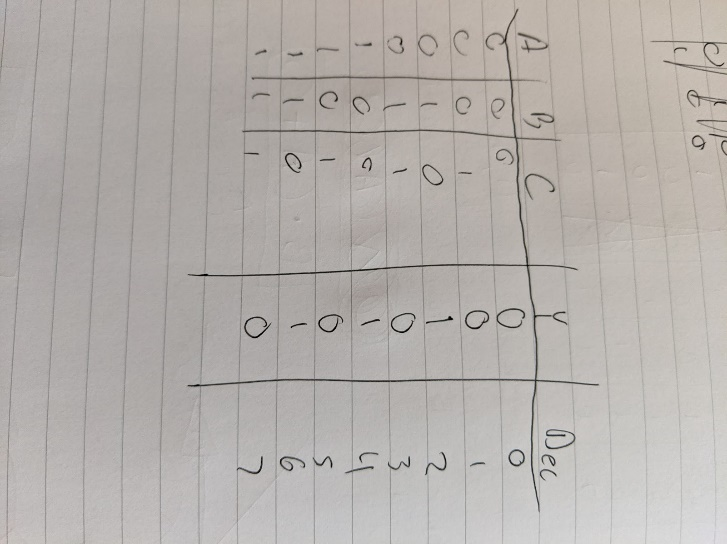 A B C Y Dec
0 0 0 0 0
0 0 1 0 1
0 1 0 1 2
0 1 1 0 3
1 0 0 1 4
1 0 1 0 5
1 1 0 1 6
1 1 1 0 7